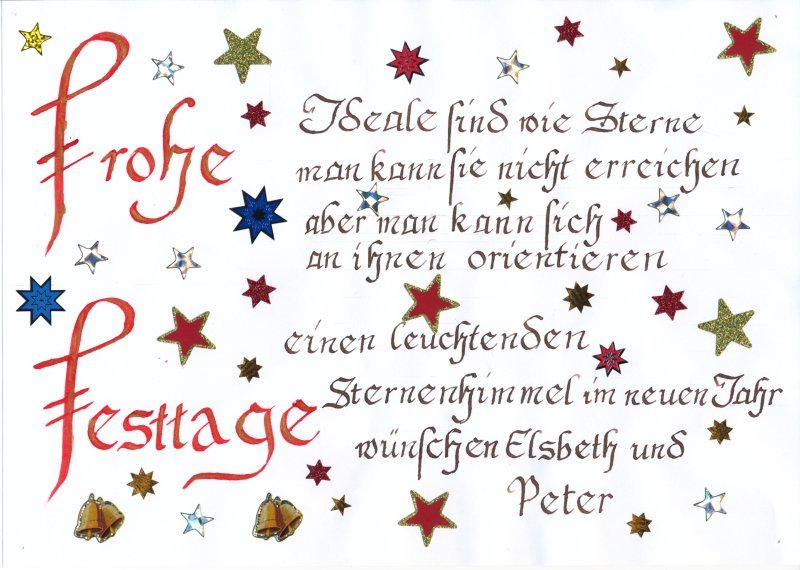 Frohe
Festtage
Ideale sind wie Sterne
man kann sie nicht erreichen
aber man kann sich
an ihnen orientieren
einen leuchtenden
Sternenhimmel im neuen Jahr
wünschen Elsbeth und
Peter